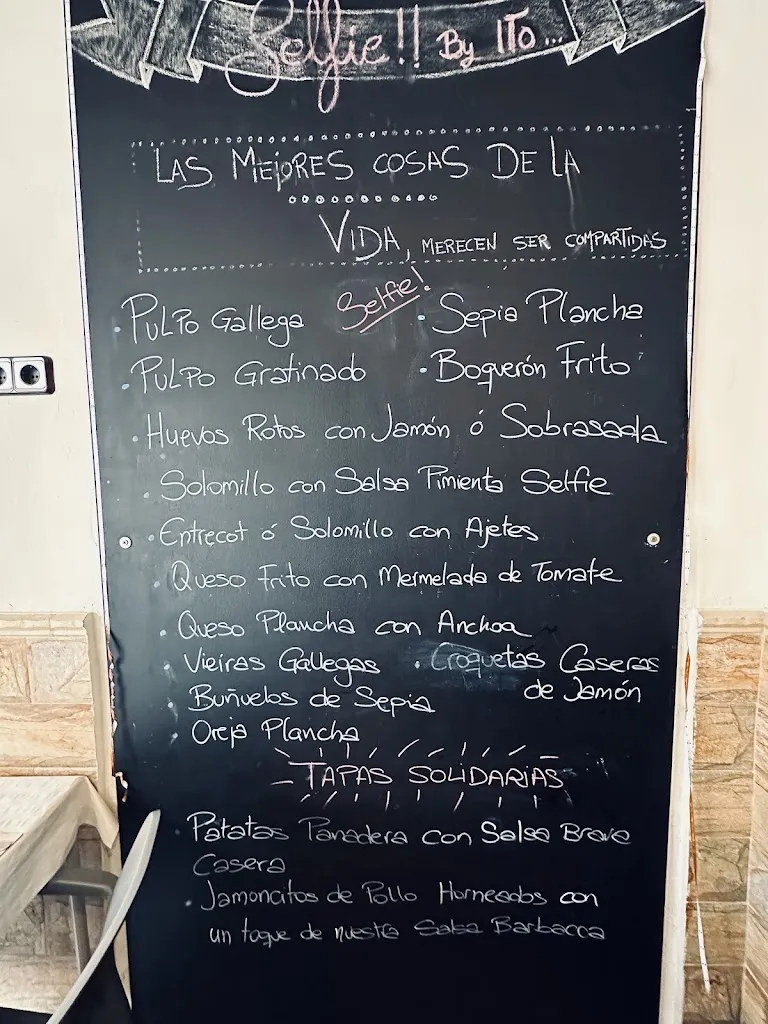 Selfie!! By ITO...
LAS MEJORES COSAS DE LA
VIDA, MERECEN SER COMPARTIDAS
Selfie!
· Pulpo Gallega
· Sepia Plancha
· Pulpo Gratinado
· Boquerón Frito
· Huevos Rotos con Jamón ó Sobrasada
· Solomillo con Salsa Pimienta Selfie
· Entrecot ó Solomillo con Ajetes
· Queso Frito con Mermelada de Tomate
· Queso Plancha con Anchoa
· Vieiras Gallegas
· Croquetas Caseras
de Jamón
· Buñuelos de Sepia
· Oreja Plancha
TAPAS SOLIDARIAS
· Patatas Panadera con Salsa Brava
Casera
· Jamoncitos de Pollo Horneados con
un toque de nuestra Salsa Barbacca